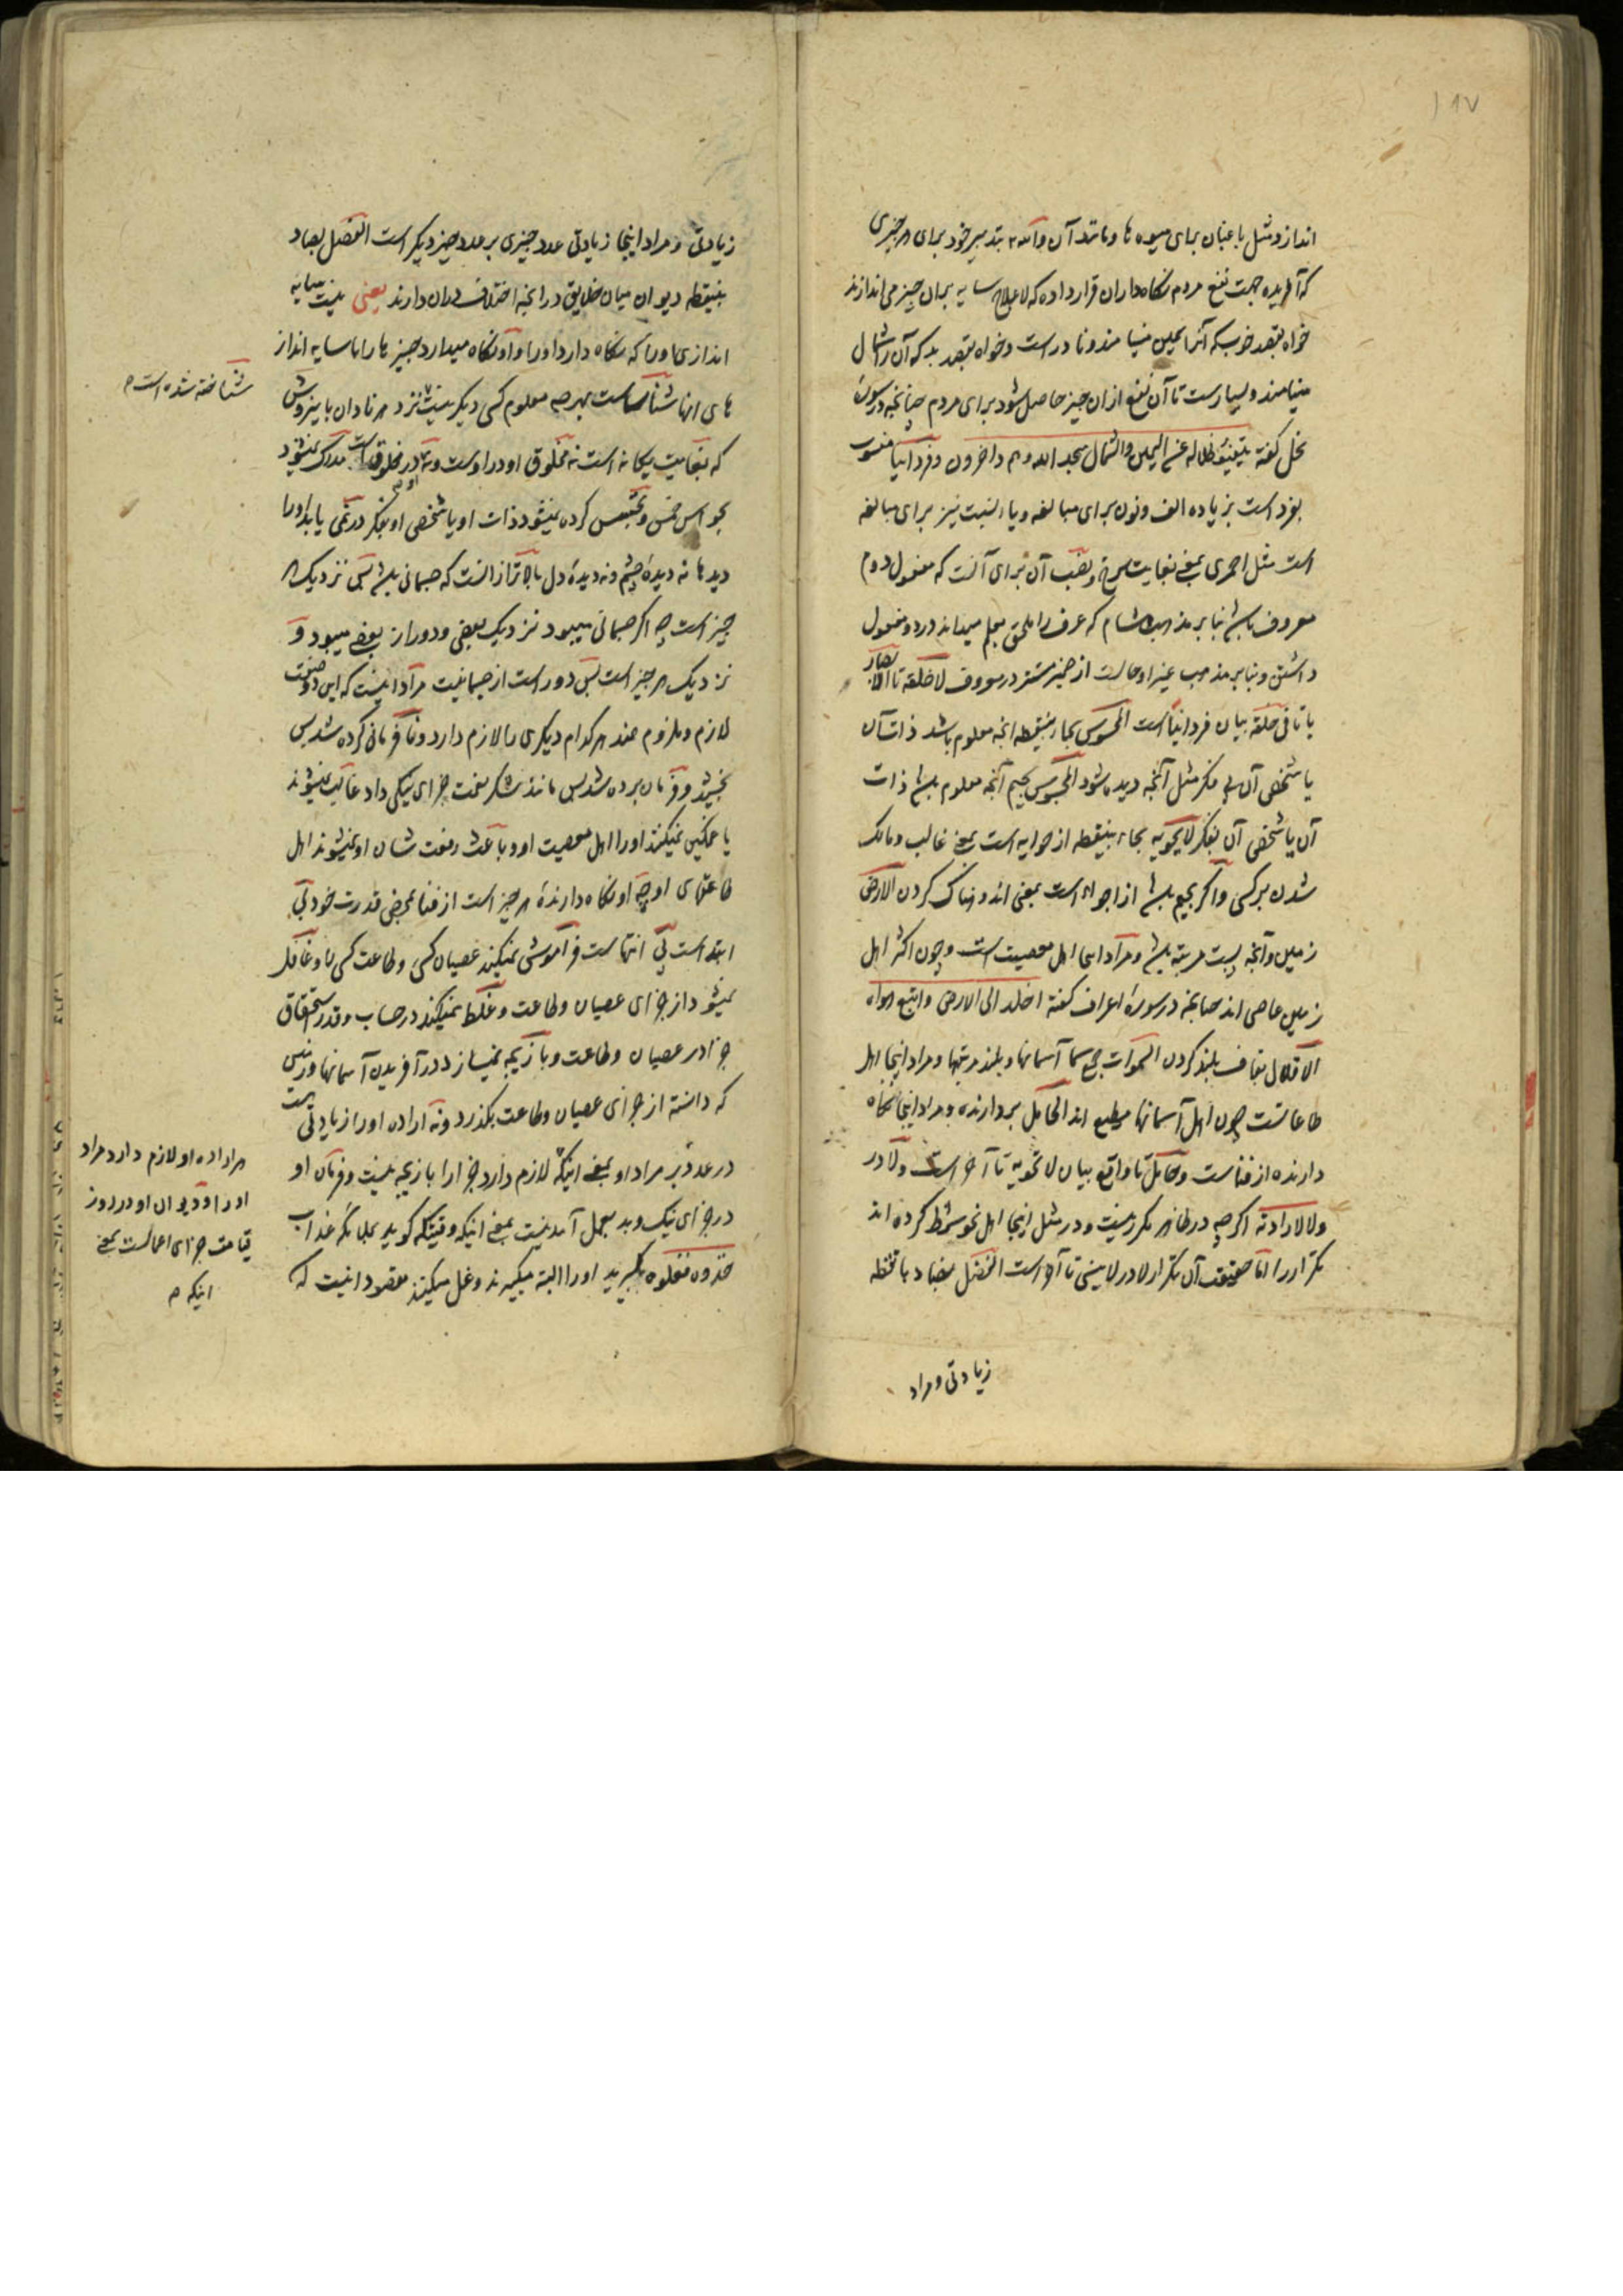 ۱۸۷
اندازد مثل باغبان برای میوه ها و مانند آن والله بتدبیر خود برای هر چیزی
که آفریده جهت نفع مردم نگاه داران قرار داده که لاعلاج سایه بران چیز می اندازند
خواه بقصد خوب که آنرا یمین مینامند و نادر است و خواه بقصد بد که آن را شمال
مینامند و بسیار است تا آن نفع ازان چیز حاصل شود برای مردم چنانچه در سورهٔ
نحل گفته یتفیؤ ظلاله عن الیمین والشمال سجدا لله وهم داخرون و فردانیا منسوب
بفرد است بزیاده الف و نون برای مبالغه و یاء نسبت نیز برای مبالغه
است مثل احمری بمعنی بغایت سرخ و نصب آن برای آنست که مفعول دوم
معروف باشد بنا بر مذهب هشام که عرف را ملحق بعلم میداند در دو مفعول
داشتن و بنا بر مذهب غیر او حالست از ضمیر مستتر در معروف لا خلقه تا الابصار
یا تا فی خلقه بیان فردانیا است المحسوس بحاء بینقطه آنچه معلوم باشد ذات آن
یا شخص آن بی فکر مثل آنچه دیده شود المجسوس بجیم آنچه معلوم باشد ذات
آن یا شخص آن بفکر لا یحویه بحاء بینقطه از حوایه است بمعنی غالب و مالک
شدن بر کسی و اگر بجیم باشد از اجواء است بمعنی اندوهناک کردن الارض
زمین و آنچه پست مرتبه باشد و مراد اینجا اهل معصیت است و چون اکثر اهل
زمین عاصی اند چنانچه در سورهٔ اعراف گفته اخلد الی الارض واتبع هواه
الاقلال بقاف بلند کردن السموات جمع سما آسمانها و بلند مرتبها و مراد اینجا اهل
طاعاتست چون اهل آسمانها مطیع اند الحامل بردارنده و مراد اینجا نگاه
دارنده از فناست و حامل تا واقع بیان لا تحویه تا آخر است و لا در
ولا لارادته اگر چه در ظاهر مکرر نیست و در مثل اینجا اهل نحو شرط کرده اند
تکرار را اما حقیقت آن تکرار لا در لا ینسی تا آخر است الفضل بضاد با نقطه
زیادتی و مراد
زیادتی و مراد اینجا زیادتی عدد چیزی بر عدد چیز دیگر است الفصل بصاد
بینقطه دیوان میان خلایق در آنچه اختلاف دران دارند یعنی نیست سایه
اندازی او را که نگاه دارد او را و او نگاه میدارد چیزها را با سایه انداز
های آنها شناساست بهر چه معلوم کسی دیگر نیست نزد هر نادان باینروش
شناخته شده است م
که بغایت یگانه است نه مخلوق او در اوست و نه او در مخلوق اوست مدرک نمیشود
بحواس خمس و تجسس کرده نمیشود ذات او یا شخص او بفکر در نمی یابد او را
دیدها نه دیدهٔ چشم و نه دیدهٔ دل بالاتر ازانست که جسمانی باشد پس نزدیک هر
چیز است چه اگر جسمانی میبود نزدیک بعضی و دور از بعضی میبود و
نزدیک هر چیز است پس دور است از جسمانیت مراد اینست که این دو صفت
لازم و ملزوم همند هر کدام دیگری را لازم دارد و نافرمانی کرده شد پس
بخشید و فرمان برده شد پس مانند شکر نعمت جزای نیکی داد غالب نمیشوند
یا غمگین نمیکنند او را اهل معصیت او و باعث رفعت شان او نمیشوند اهل
طاعتهای او چه او نگاه دارندهٔ هر چیز است از فنا بمحض قدرت خود بی
ابتداست بی انتهاست فراموشی نمیکند عصیان کسی و طاعت کسی را و غافل
نمیشود از جزای عصیان و طاعت و غلط نمیکند در حساب و قدر استحقاق
جزا در عصیان و طاعت و بازیچه نمیسازد در آفریدن آسمانها و زمین
که دانسته از جزای عصیان و طاعت بگذرد و نه اراده او را زیادتی است
در عدد بر مراد او بمعنی اینکه لازم دارد جزا را بازیچه نیست و فرمان او
در جزای نیک و بد بعمل آمدنیست بمعنی اینکه وقتیکه گوید بملائکه عذاب
خذوه فغلوه بگیرید او را البته میگیرند و غل میکنند مقصود اینست که
هر اراده او لازم دارد مراد
او را و دیوان او در روز
قیامت جزای اعمالست بمعنی
اینکه م